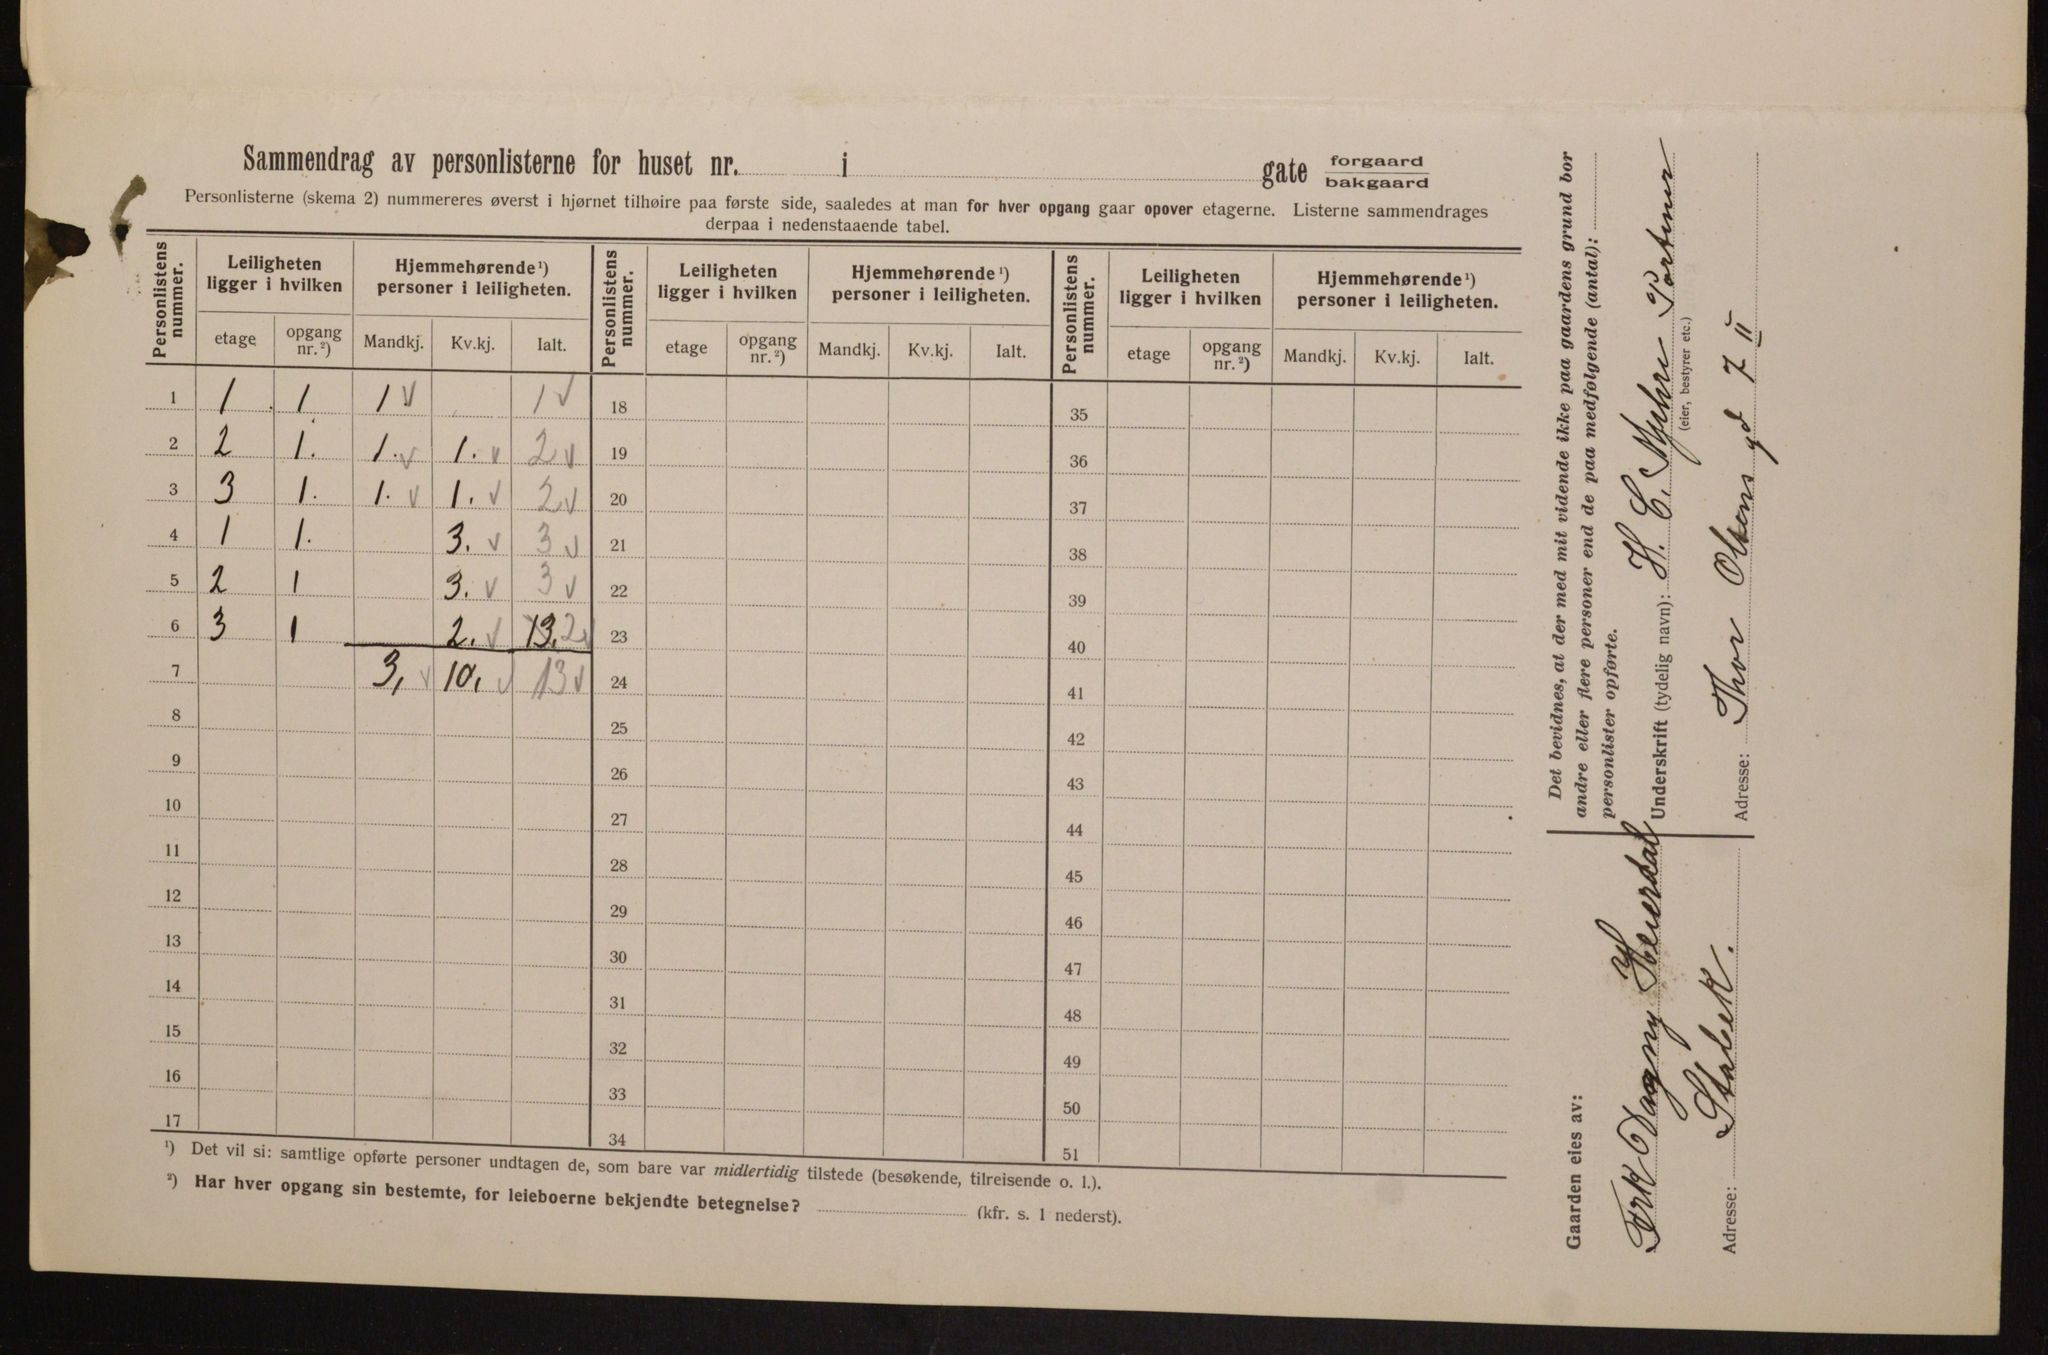 Sammendrag av personlisterne for huset nr. i gate forgaard
bakgaard
Personlisterne (skema 2) nummereres øverst i hjørnet tilhøire paa første side, saaledes at man for hver opgang gaar opover etagerne. Listerne sammendrages
derpaa i nedenstaaende tabel.
Personlistens nummer. Leiligheten ligger i hvilken Hjemmehørende ¹) personer i leiligheten. Personlistens nummer. Leiligheten ligger i hvilken Hjemmehørende ¹) personer i leiligheten. Personlistens nummer. Leiligheten ligger i hvilken Hjemmehørende ¹) personer i leiligheten.
etage opgang nr. ²) Mandkj. Kv.kj. Ialt. etage opgang nr. ²) Mandkj. Kv.kj. Ialt. etage opgang nr. ²) Mandkj. Kv.kj. Ialt.
1 1 1 1 v 1 v 18 35
2 2 1. 1. v 1. v 2 v 19 36
3 3 1. 1. v 1. v 2 v 20 37
4 1 1. 3. v 3 v 21 38
5 2 1 3. v 3 v 22 39
6 3 1 2. v 13. 2 v 23 40
7 3, v 10, v 13 v 24 41
8 25 42
9 26 43
10 27 44
11 28 45
12 29 46
13 30 47
14 31 48
15 32 49
16 33 50
17 34 51
¹) Det vil si: samtlige opførte personer undtagen de, som bare var midlertidig tilstede (besøkende, tilreisende o. l.).
²) Har hver opgang sin bestemte, for leieboerne bekjendte betegnelse? (kfr. s. 1 nederst).
Det bevidnes, at der med mit vidende ikke paa gaardens grund bor
andre eller flere personer end de paa medfølgende (antal):
personlister opførte.
Underskrift (tydelig navn): H. C. Myhre Portner
(eier, bestyrer etc.)
Adresse: Thor Olsens gd 7 II
Gaarden eies av:
Frk Dagny Heierdal
Adresse: Stabæk.